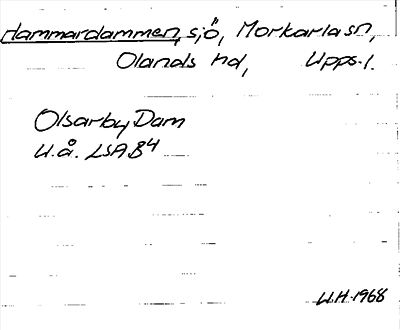 Hammardammen, sjö, Morkarla sn,
Olands hd, Upps. l.
Olsarby Dam
U.å. LSA B4
U.H. 1968